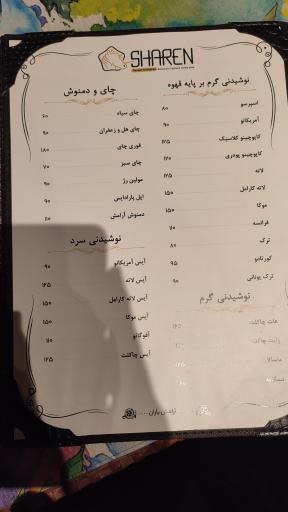 SHAREN
نوشیدنی گرم بر پایه قهوه
اسپرسو ۸۰
آمریکانو ۹۰
کاپوچینو کلاسیک ۱۲۵
کاپوچینو پودری ۱۲۰
لاته ۱۲۵
لاته کارامل ۱۵۰
موکا ۱۵۰
فرانسه ۱۱۰
ترک ۸۰
کورتادو ۹۵
ترک یونانی ۹۰
نوشیدنی گرم
هات چاکلت ۱۲۵
وایت چاکلت
ماسالا ۱۲۵
چای و دمنوش
چای سیاه ۶۰
چای هل و زعفران ۹۰
قوری چای ۱۸۰
چای سبز ۷۰
مولین رژ ۹۰
اپل پارادایس ۹۰
دمنوش آرامش ۱۱۰
نوشیدنی سرد
آیس آمریکانو ۹۰
آیس لاته ۱۲۵
آیس لاته کارامل ۱۵۰
آیس موکا ۱۵۰
آفوگاتو ۱۱۰
آیس چاکلت ۱۲۵